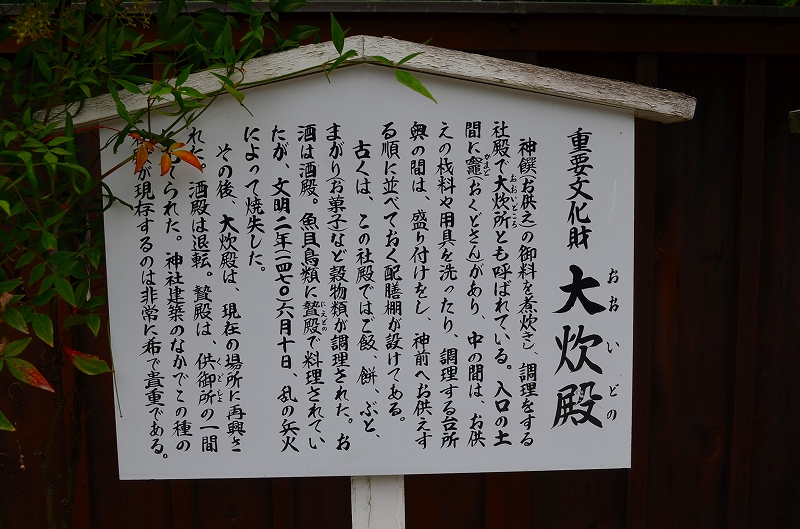 重要文化財
大炊殿
おおいどの
神饌(お供え)の御料を煮炊きし、調理をする
社殿で大炊所とも呼ばれている。入口の土
おおいどころ
間に竈(おくどさん)があり、中の間は、お供
かまど
えの材料や用具を洗ったり、調理する台所
奥の間は、盛り付けをし、神前へお供えす
る順に並べておく配膳棚が設けてある。
古くは、この社殿ではご飯、餅、ぶと、
まがり(お菓子)など穀物類が調理された。お
酒は酒殿。魚貝鳥類は贄殿で料理されてい
にえどの
たが、文明二年(一四七〇)六月十日 乱の兵火
によって焼失した。
その後、大炊殿は、現在の場所に再興さ
れた。酒殿は退転。贄殿は、供御所の一間
くごしょ
てられた。神社建築のなかでこの種の
が現存するのは非常に希で貴重である。